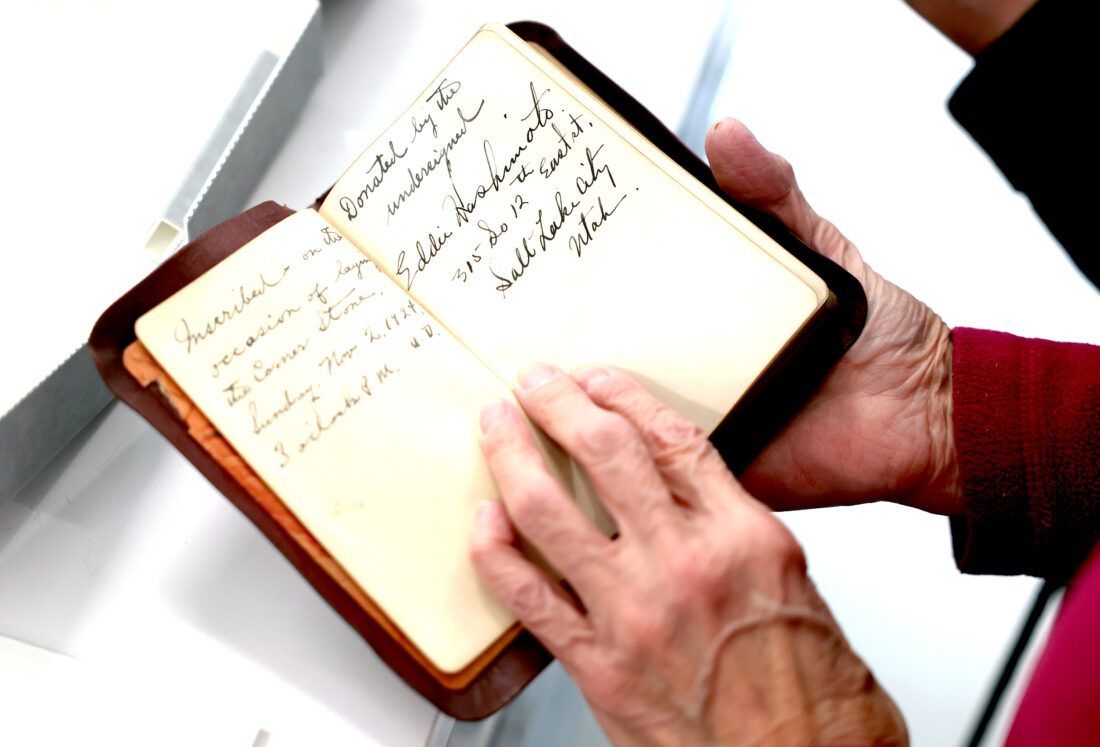 Inscribed on the
occasion of laying
the Corner Stone,
Sunday, Nov. 2, 1924,
3 o'clock P.M. U.D.
Donated by the
undersigned
Eddie Hashimoto.
315 So 12th East st.
Salt Lake City
Utah.